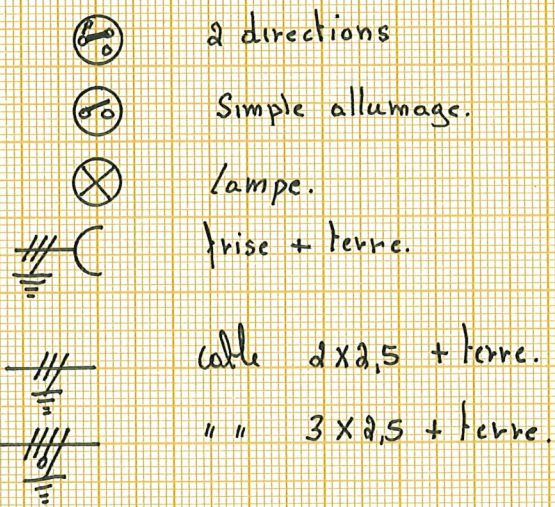 2 directions
Simple allumage.
lampe.
prise + terre.
cable 2x2,5 + terre.
" " 3x2,5 + terre.